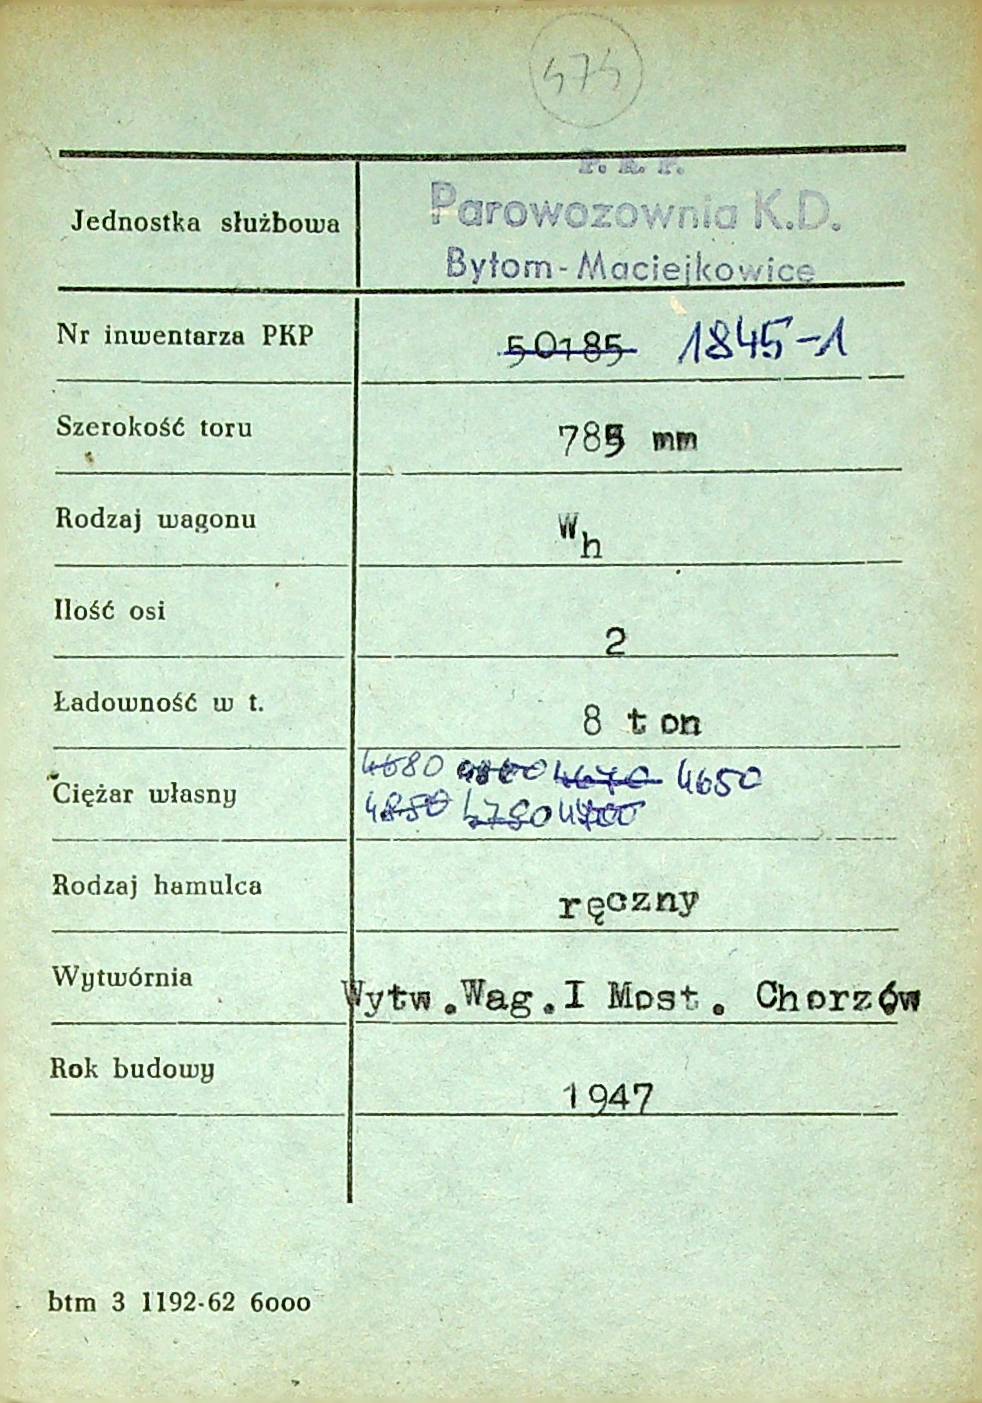 474
P. K. P.
Jednostka służbowa Parowozownia K.D.
Bytom-Maciejkowice
Nr inwentarza PKP 50185 1845-1
Szerokość toru 785 mm
Rodzaj wagonu Wh
Ilość osi 2
Ładowność w t. 8 ton
4680 4670 4650
Ciężar własny
4850 4780
Rodzaj hamulca ręczny
Wytwórnia Wytw.Wag.I Most. Chorzów
Rok budowy 1947
btm 3 1192-62 6000